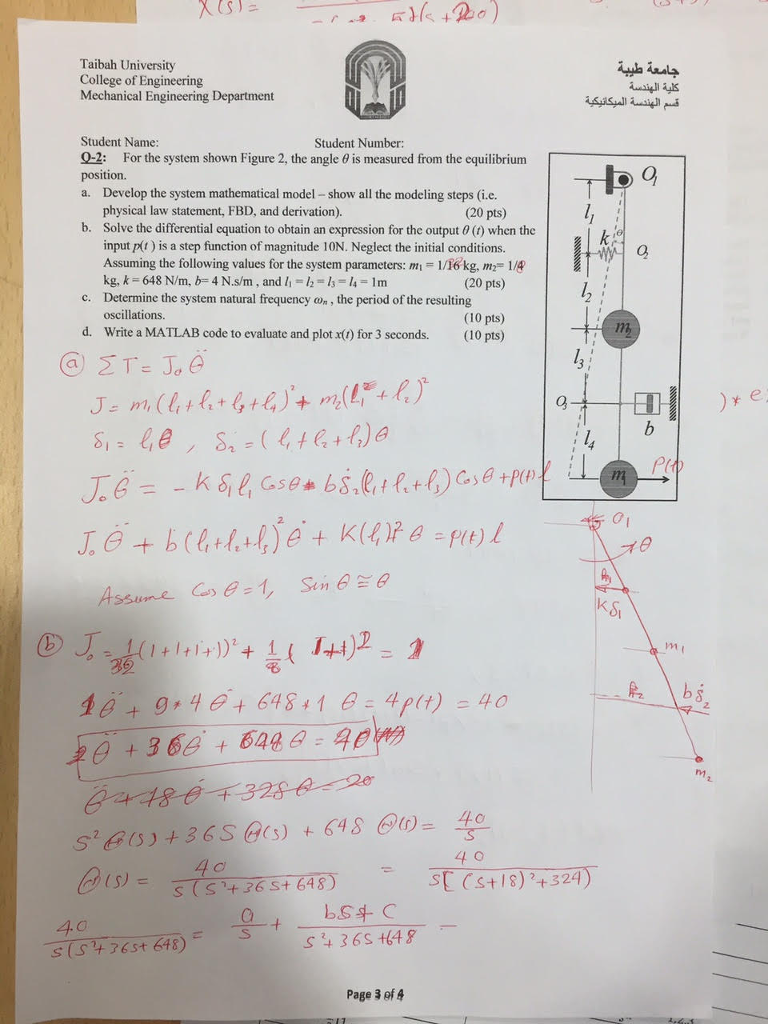 X(s) =
Taibah University
College of Engineering
Mechanical Engineering Department
جامعة طيبة
كلية الهندسة
قسم الهندسة الميكانيكية
Student Name: Student Number:
Q-2: For the system shown Figure 2, the angle θ is measured from the equilibrium
position.
a. Develop the system mathematical model – show all the modeling steps (i.e.
physical law statement, FBD, and derivation). (20 pts)
b. Solve the differential equation to obtain an expression for the output θ (t) when the
input p(t) is a step function of magnitude 10N. Neglect the initial conditions.
Assuming the following values for the system parameters: m₁ = 1/ kg, m₂= 1/
kg, k = 648 N/m, b= 4 N.s/m , and l₁ = l₂ = l₃ = l₄ = 1m (20 pts)
c. Determine the system natural frequency ωn , the period of the resulting
oscillations. (10 pts)
d. Write a MATLAB code to evaluate and plot x(t) for 3 seconds. (10 pts)
O₁
l₁
k
θ
O₂
l₂
m₂
l₃
O₃
b
l₄
m₁
P(t)
ⓐ ΣT = J₀ θ̈
J = m₁(l₁+l₂+l₃+l₄)² + m₂(l₁+l₂)²
δ₁ = l₁θ , δ₂ = (l₁+l₂+l₃)θ
J₀ θ̈ = - K δ₁ l₁ Cosθ - b δ̇₂(l₁+l₂+l₃) Cosθ + p(t) l
J₀ θ̈ + b(l₁+l₂+l₃)² θ̇ + K(l₁)² θ = p(t) l
Assume Cosθ = 1, Sinθ ≅ θ
O₁
θ
Kδ₁
m₁
bδ̇₂
m₂
ⓑ J₀ = (1+1+1+1)² + 1/8 (1+1)² = 1
1θ̈ + 9*4 θ̇ + 648*1 θ = 4p(t) = 40
θ̈ + 36θ̇ + 648 θ = 40
θ̈ + 18θ̇ + 328θ = 20
S² Θ(s) + 36S Θ(s) + 648 Θ(s) = 40/S
Θ(s) = 40/S(S²+36S+648) = 40/S[(S+18)²+324)
40/S(S²+36S+648) = a/S + bS+C/S²+36S+648 =
Page 3 of 4